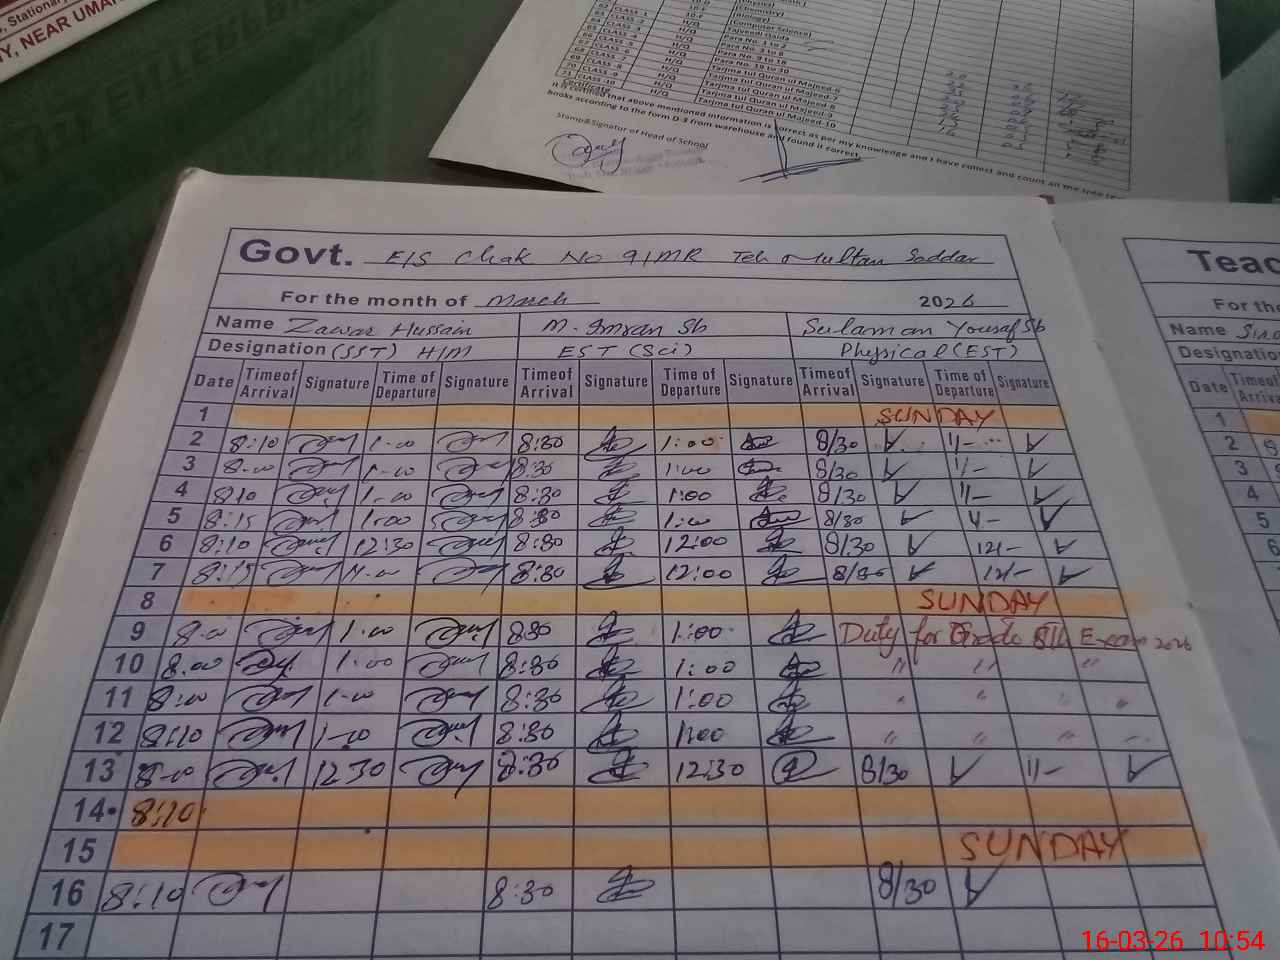 , Stationary
Y, NEAR UMA
62 CLASS-1 H/Q Tajveedi Qaida
CLASS-2 H/Q Para No. 1 to 2
H/Q Para No. 3 to 8
H/Q Para No. 9 to 18
CLASS-6 H/Q Tarjma tul Quran ul Majeed-6
CLASS-7 H/Q Tarjma tul Quran ul Majeed-7
CLASS-8 H/Q Tarjma tul Quran ul Majeed-8
CLASS-9 H/Q Tarjma tul Quran ul Majeed-9
71 CLASS-10 H/Q Tarjma tul Quran ul Majeed-10
Certificate
It is certified that above mentioned information is correct as per my knowledge and I have collect and count all the
books according to the form D-3 from warehouse and found it correct.
Stamp&Signatur of Head of School
Govt. E/S Chak No 91MR Teh Multan Saddar
For the month of March 2026
Name Zawar Hussain M. Imran Sb Sulaman Yousaf Sb
Designation (SST) H/M EST (Sci) Physical (EST)
Date Timeof Arrival Signature Time of Departure Signature Timeof Arrival Signature Time of Departure Signature Timeof Arrival Signature Time of Departure Signature
1 SUNDAY
2 8:10 1-00 8:30 1:00 8/30 1/-
3 8-00 1-00 8:30 1:00 8/30 1/-
4 8:10 1-00 8:30 1:00 8/30 1/-
5 8:15 1:00 8:30 1:00 8/30 1/-
6 8:10 12:30 8:30 12:00 8/30 12/-
7 8:15 8:30 12:00 8/30 12/-
8 SUNDAY
9 8-00 1:00 830 1:00 Duty for Grade 8th Exam 2026
10 8:00 1:00 8:30 1:00 " " "
11 8:00 1-00 8:30 1:00 " " " "
12 8:10 1-00 8:30 1:00 " " " "
13 8-00 1230 8:30 12:30 8/30 1/-
14 8:10
15 SUNDAY
16 8:10 8:30 8/30
17
Teac
For the
Name
Designatio
Date Timeof Arriva
1
2
3
4
5
6
16-03-26 10:54